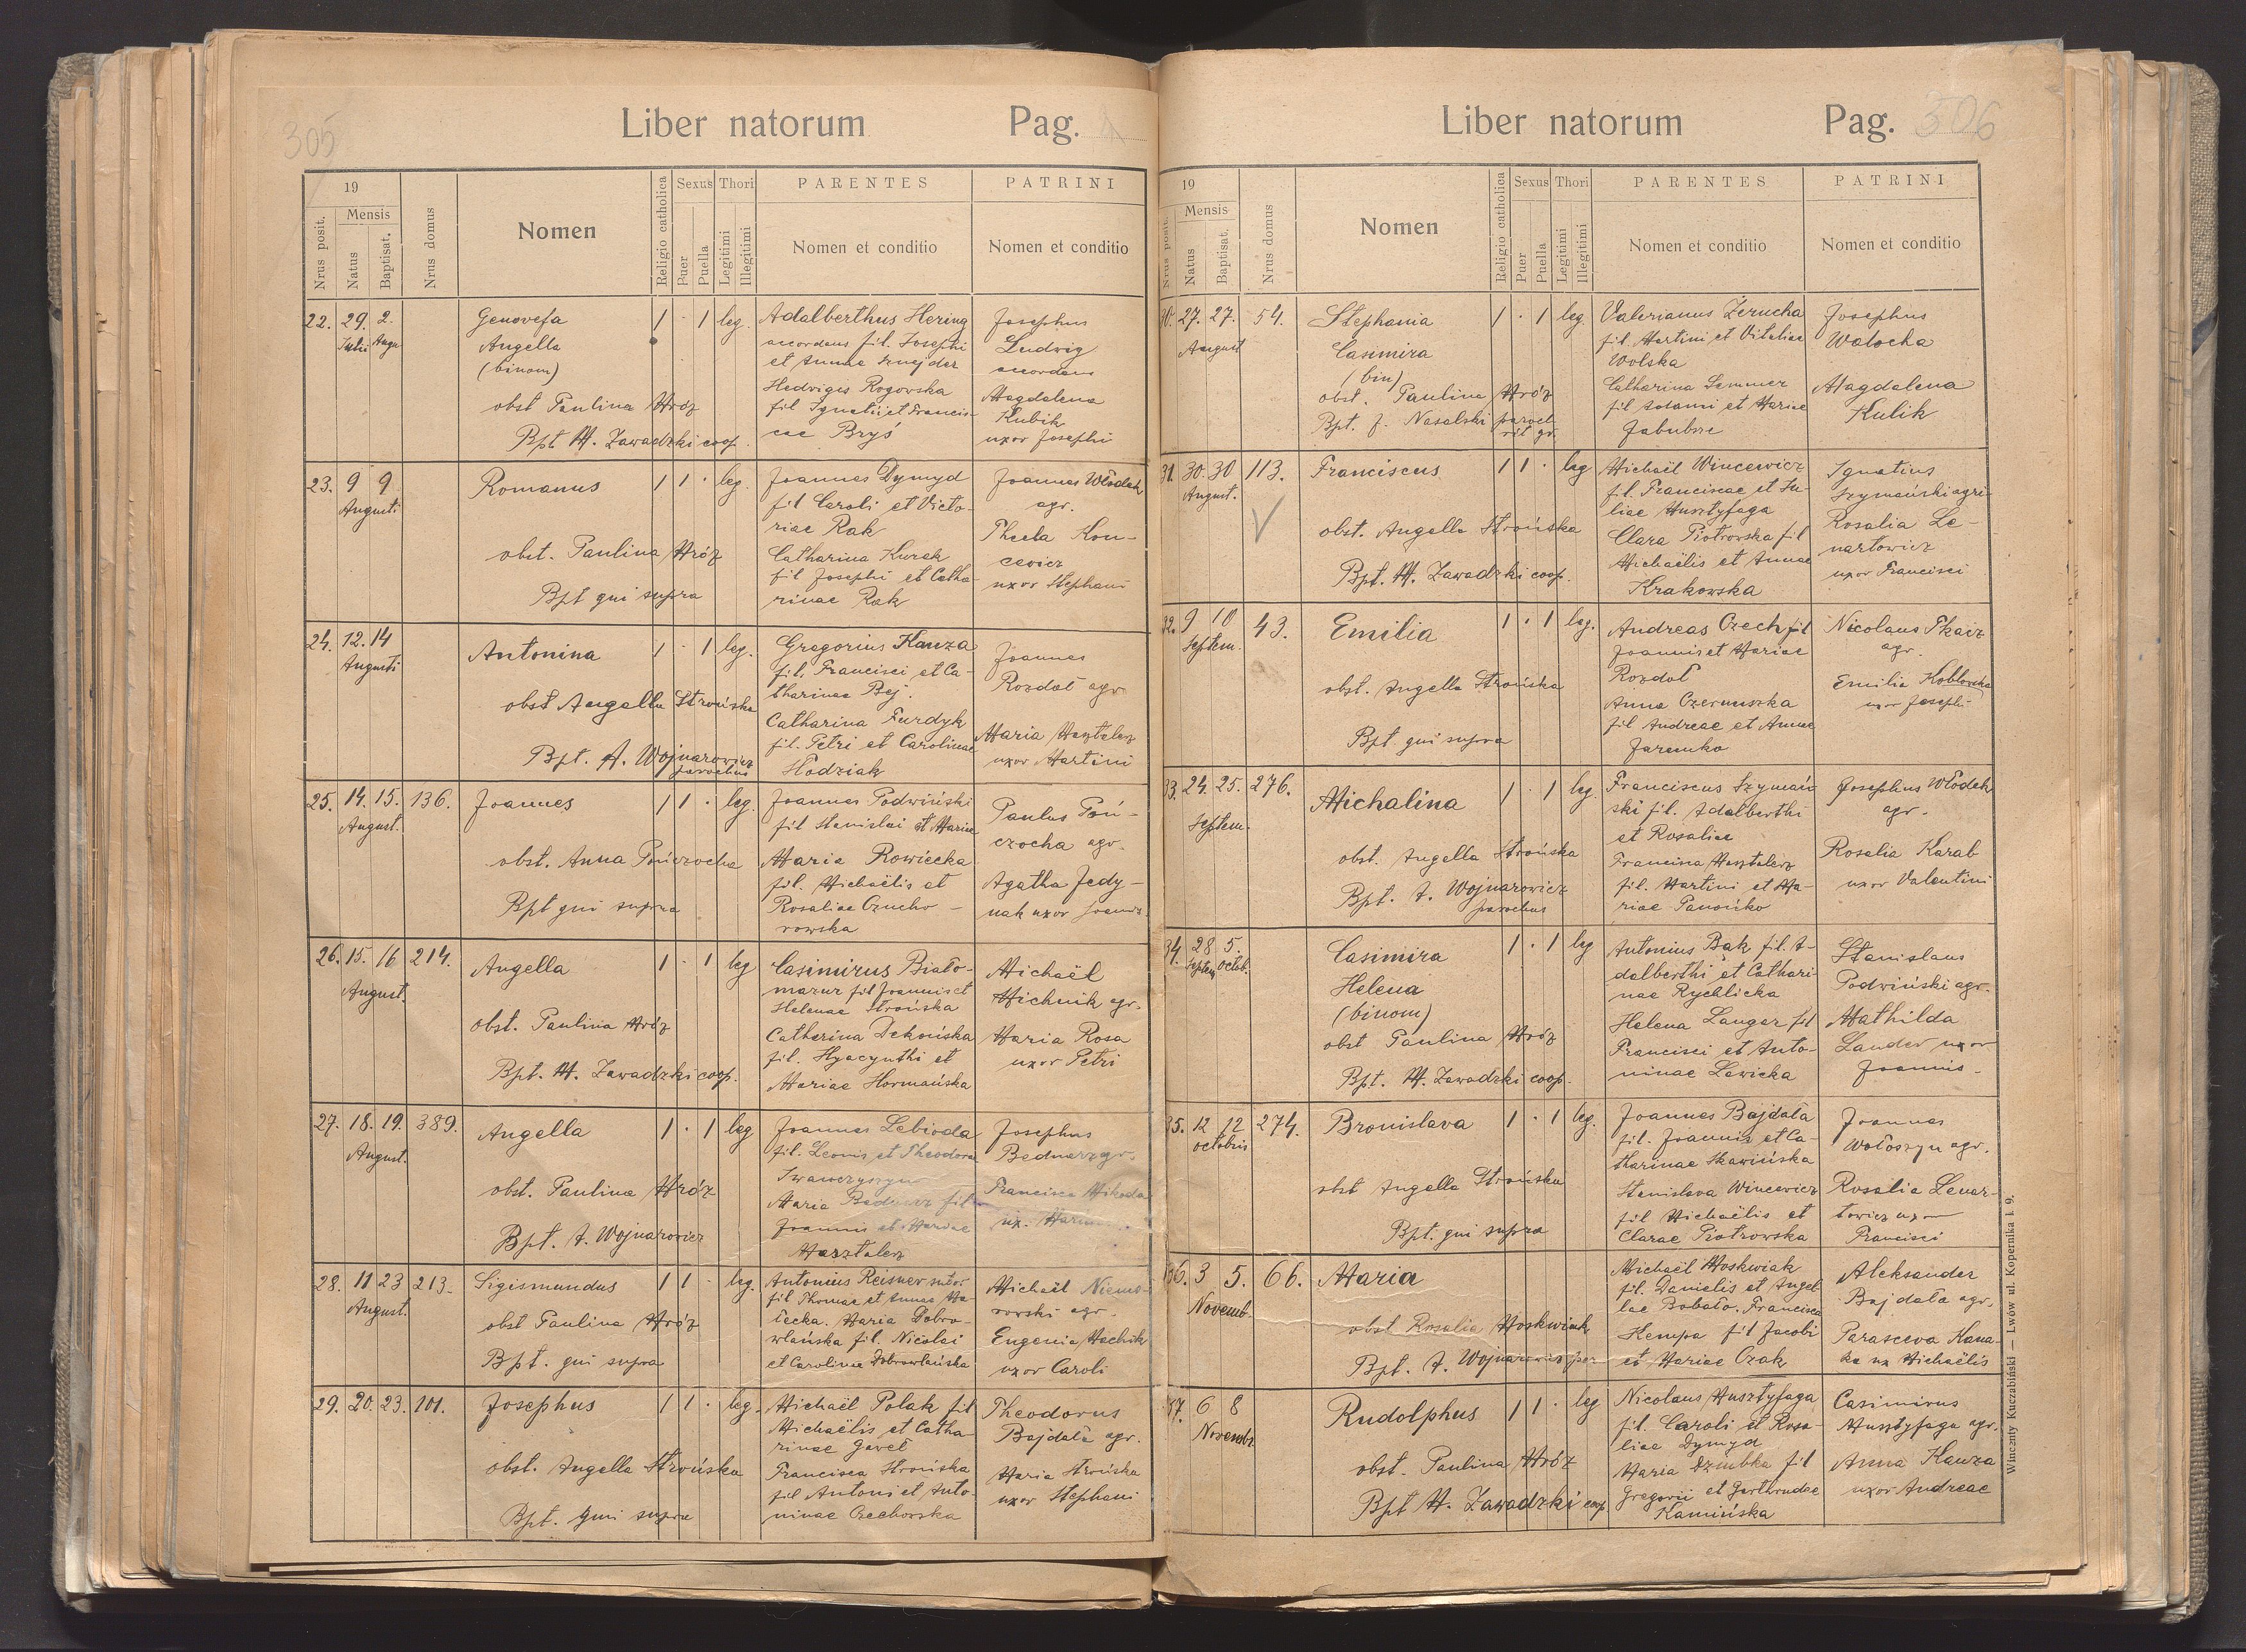 305
Liber natorum Pag.
19
Mensis
Nrus posit.
Natus
Baptisat.
Nrus domus
Nomen
Religio catholica
Sexus
Puer
Puella
Thori
Legitimi
Illegitimi
PARENTES
Nomen et conditio
PATRINI
Nomen et conditio
22. 29. 2.
Julii Augu
Genovefa
Angella
(binom)
obst Paulina Mróz
Bpt. M. Zawadzki coop.
1 · 1 leg.
Adalberthus Hering
accordens fil. Josephi
et Annae Sznejder
Hedviges Rogowska
fil Ignatii et Francis-
cae Bryś
Josephus
Ludwig
accordens
Magdalena
Kubik
uxor Josephi
23. 9 9
Augusti
Romanus
obst. Paulina Mróz
Bpt qui supra
1 1 · leg.
Joannes Dymyd
fil Caroli et Victo-
riae Rak
Catharina Kurek
fil Josephi et Catha-
rinae Rak
Joannes Włodek
agr.
Thecla Kon-
cewicz
uxor Stephani
24. 12. 14
Augusti
Antonina
obst Angella Strońska
Bpt. A. Wojnarowicz
parochus
1 · 1 leg.
Gregorius Kauza
fil. Francisci et Ca-
tharinae Bej.
Catharina Furdyk
fil. Petri et Carolinae
Hodziak
Joannes
Rozdoł agr.
Maria Masztalerz
uxor Martini
25. 14. 15. 136.
August.
Joannes
obst. Anna Pończocha
Bpt qui supra
1 1 · leg.
Joannes Podwiński
fil Stanislai et Mariae
Maria Rowiecka
fil. Michaëlis et
Rosaliae Czucho-
rowska
Paulus Poń-
czocha agr.
Agatha Jedy-
nak uxor Joannis
26. 15. 16 214.
August.
Angella
obst. Paulina Mróz
Bpt. M. Zawadzki coop.
1 · 1 leg
Casimirus Biało-
mazur fil Joannis et
Helenae Strońska
Catharina Dekońska
fil. Hyacynthi et
Mariae Hormańska
Michaël
Michnik agr.
Maria Rosa
uxor Petri
27. 18. 19. 389.
August.
Angella
obst. Paulina Mróz
Bpt. A. Wojnarowicz
1 · 1 leg
Joannes Lebioda
fil. Leonis et Theodorae
Iwanczyszyn
Maria Bednarz fil
Joannis et Mariae
Masztalerz
Josephus
Bednarz agr.
Francisca
ux.
28. 11 23 213.
August.
Sigismundus
obst Paulina Mróz
Bpt. qui supra
1 1 · leg.
Antonius Reisner sutor
fil Thomae et Annae Ma-
łecka. Maria Dobro-
wlańska fil. Nicolai
et Carolinae Dobrowlańska
Michaël Niemo-
rowski agr.
Eugenia Machnik
uxor Caroli
29. 20. 23. 101.
Josephus
obst. Angella Strońska
Bpt. qui supra
1 1 · leg.
Michaël Polak fil
Michaëlis et Catha-
rinae Gaweł
Francisca Strońska
fil Antoni et Anto-
ninae Czechowska
Theodorus
Bajdała agr.
Maria Strońska
uxor Stephani
Liber natorum Pag. 306
19
Mensis
Nrus posit.
Natus
Baptisat.
Nrus domus
Nomen
Religio catholica
Sexus
Puer
Puella
Thori
Legitimi
Illegitimi
PARENTES
Nomen et conditio
PATRINI
Nomen et conditio
30. 27. 27. 54.
August
Stephania
Casimira
(bin)
obst. Paulina Mróz
Bpt. J. Nasalski paroch
rit gr.
1 · 1 leg.
Valerianus Zerucha
fil. Martini et Vitaliae
Wolska
Catharina Lemmer
fil Adami et Mariae
Josephus
Wołocha
Magdalena
Kulik
31. 30. 30 113.
August.
Franciscus
obst. Angella Strońska
Bpt. M. Zawadzki coop.
1 1 · leg
Michaël Wincewicz
fil. Franciscae et Ju-
liae Husztyfaga
Clara Piotrowska fil
Michaëlis et Annae
Krakowska
Ignatius
Szymański agri-
Rosalia Le-
nartowicz
uxor Francisci
32. 9 10 43.
Septem.
Emilia
obst. Angella Strońska
Bpt qui supra
1 · 1 leg.
Andreas Czech fil
Joannis et Mariae
Rozdoł
Anna Czernuszka
fil Andreae et Annae
Jaremko
Nicolaus Tkacz
agr.
Emilia Kozłowska
uxor Josephi
33. 24. 25. 276.
Septem.
Michalina
obst. Angella Strońska
Bpt. A. Wojnarowicz
parochus
1 · 1 leg.
Franciscus Szymań-
ski fil. Adalberthi
et Rosaliae
Francisca Masztalerz
fil. Martini et Ma-
riae Panońko
Josephus Włodek
agr.
Rosalia Karab
uxor Valentini
34. 28 5.
Septem Octob.
Casimira
Helena
(binom)
obst Paulina Mróz
Bpt. M. Zawadzki coop.
1 · 1 leg
Antonius Bąk fil. A-
dalberthi et Cathari
nae Rychlicka
Helena Langer fil
Francisci et Anto-
ninae Lewicka
Stanislaus
Podwiński agr.
Mathilda
Lander uxor
Joannis
35. 12 12 274.
octobris
Bronislava
obst Angella Strońska
Bpt. qui supra
1 · 1 leg.
Joannes Bajdała
fil. Joannis et Ca-
tharinae Skawińska
Stanislava Wincewicz
fil Michaëlis et
Clarae Piotrowska
Joannes
Wołoszyn agr.
Rosalia Lenar-
towicz uxor
Francisci
36. 3 5. 66.
Novemb.
Maria
obst Rosalia Moskwiak
Bpt. A. Wojnarowicz par
Michaël Moskwiak
fil. Danielis et Angel-
lae Bobało. Francisca
Kempa fil Jacobi
et Mariae Czak
Aleksander
Bajdała agr.
Parasceva Kana-
ka ux Michaëlis
37. 6 8
Novemb.
Rudolphus
obst. Paulina Mróz
Bpt M. Zawadzki coop
1 1 · leg
Nicolaus Husztyfaga
fil. Caroli et Rosa-
liae Dymyd
Maria Dziubka fil
Gregorii et Gerthrudae
Kamińska
Casimirus
Husztyfaga agr.
Anna Kauza
uxor Andreae
Winczenty Kuczabiński — Lwów ul. Kopernika l. 9.